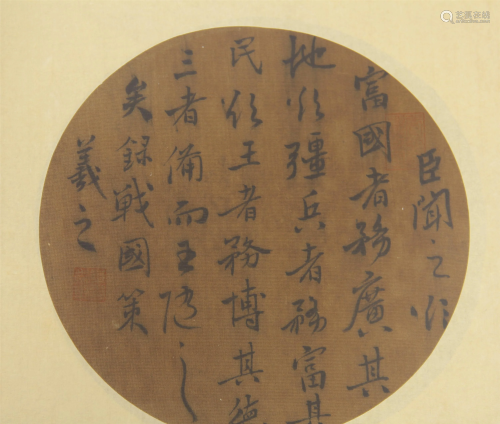 臣聞之欲
富國者務廣其
地欲彊兵者務富其
民欲王者務博其德
三者備而王隨之
矣錄戰國策
羲之